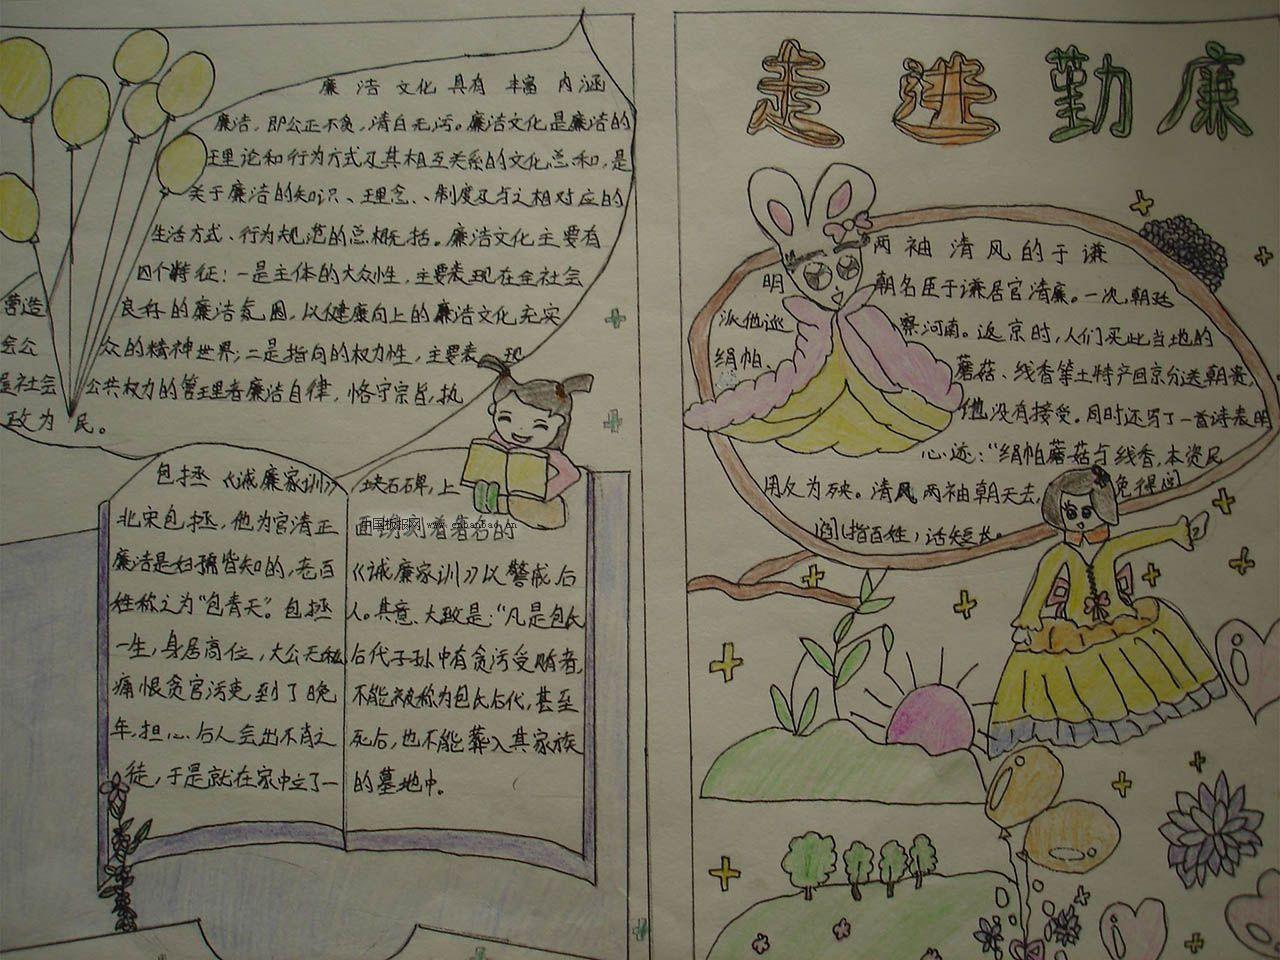 廉洁文化具有丰富内涵
廉洁，即公正不贪，清白无污。廉洁文化是廉洁的
理论和行为方式及其相互关系的文化总和，是
关于廉洁的知识、理念、制度及与之相对应的
生活方式、行为规范的总相无括。廉洁文化主要有
四个特征：一是主体的大众性，主要表现在全社会
营造良好的廉洁氛围，以健康向上的廉洁文化充实
会公众的精神世界；二是指向的权力性，主要表现
是社会公共权力的管理者廉洁自律，恪守宗旨，执
政为民。
包拯《诚廉家训》
北宋包拯，他为官清正
廉洁是妇孺皆知的，老百
姓称之为“包青天”。包拯
一生，身居高位，大公无私
痛恨贪官污吏，到了晚
年，担心后人会出不肖之
徒，于是就在家中立了一
块石碑，上
面镌刻着著名的
《诚廉家训》以警戒后
人。其意、大致是：“凡是包氏
后代子孙中有贪污受贿者，
不能被称为包氏后代，甚至
死后，也不能葬入其家族
的墓地中。
中国板报网 www.cnbanbao.cn
走进勤廉
两袖清风的于谦
明朝名臣于谦居官清廉。一次，朝廷
派他巡察河南。返京时，人们买此当地的
绢帕、蘑菇、线香等土特产回京分送朝贵，
他没有接受。同时还写了一首诗表明
心迹：“绢帕蘑菇与线香，本资民
用反为殃。清风两袖朝天去，免得闾
阎指百姓，话短长。